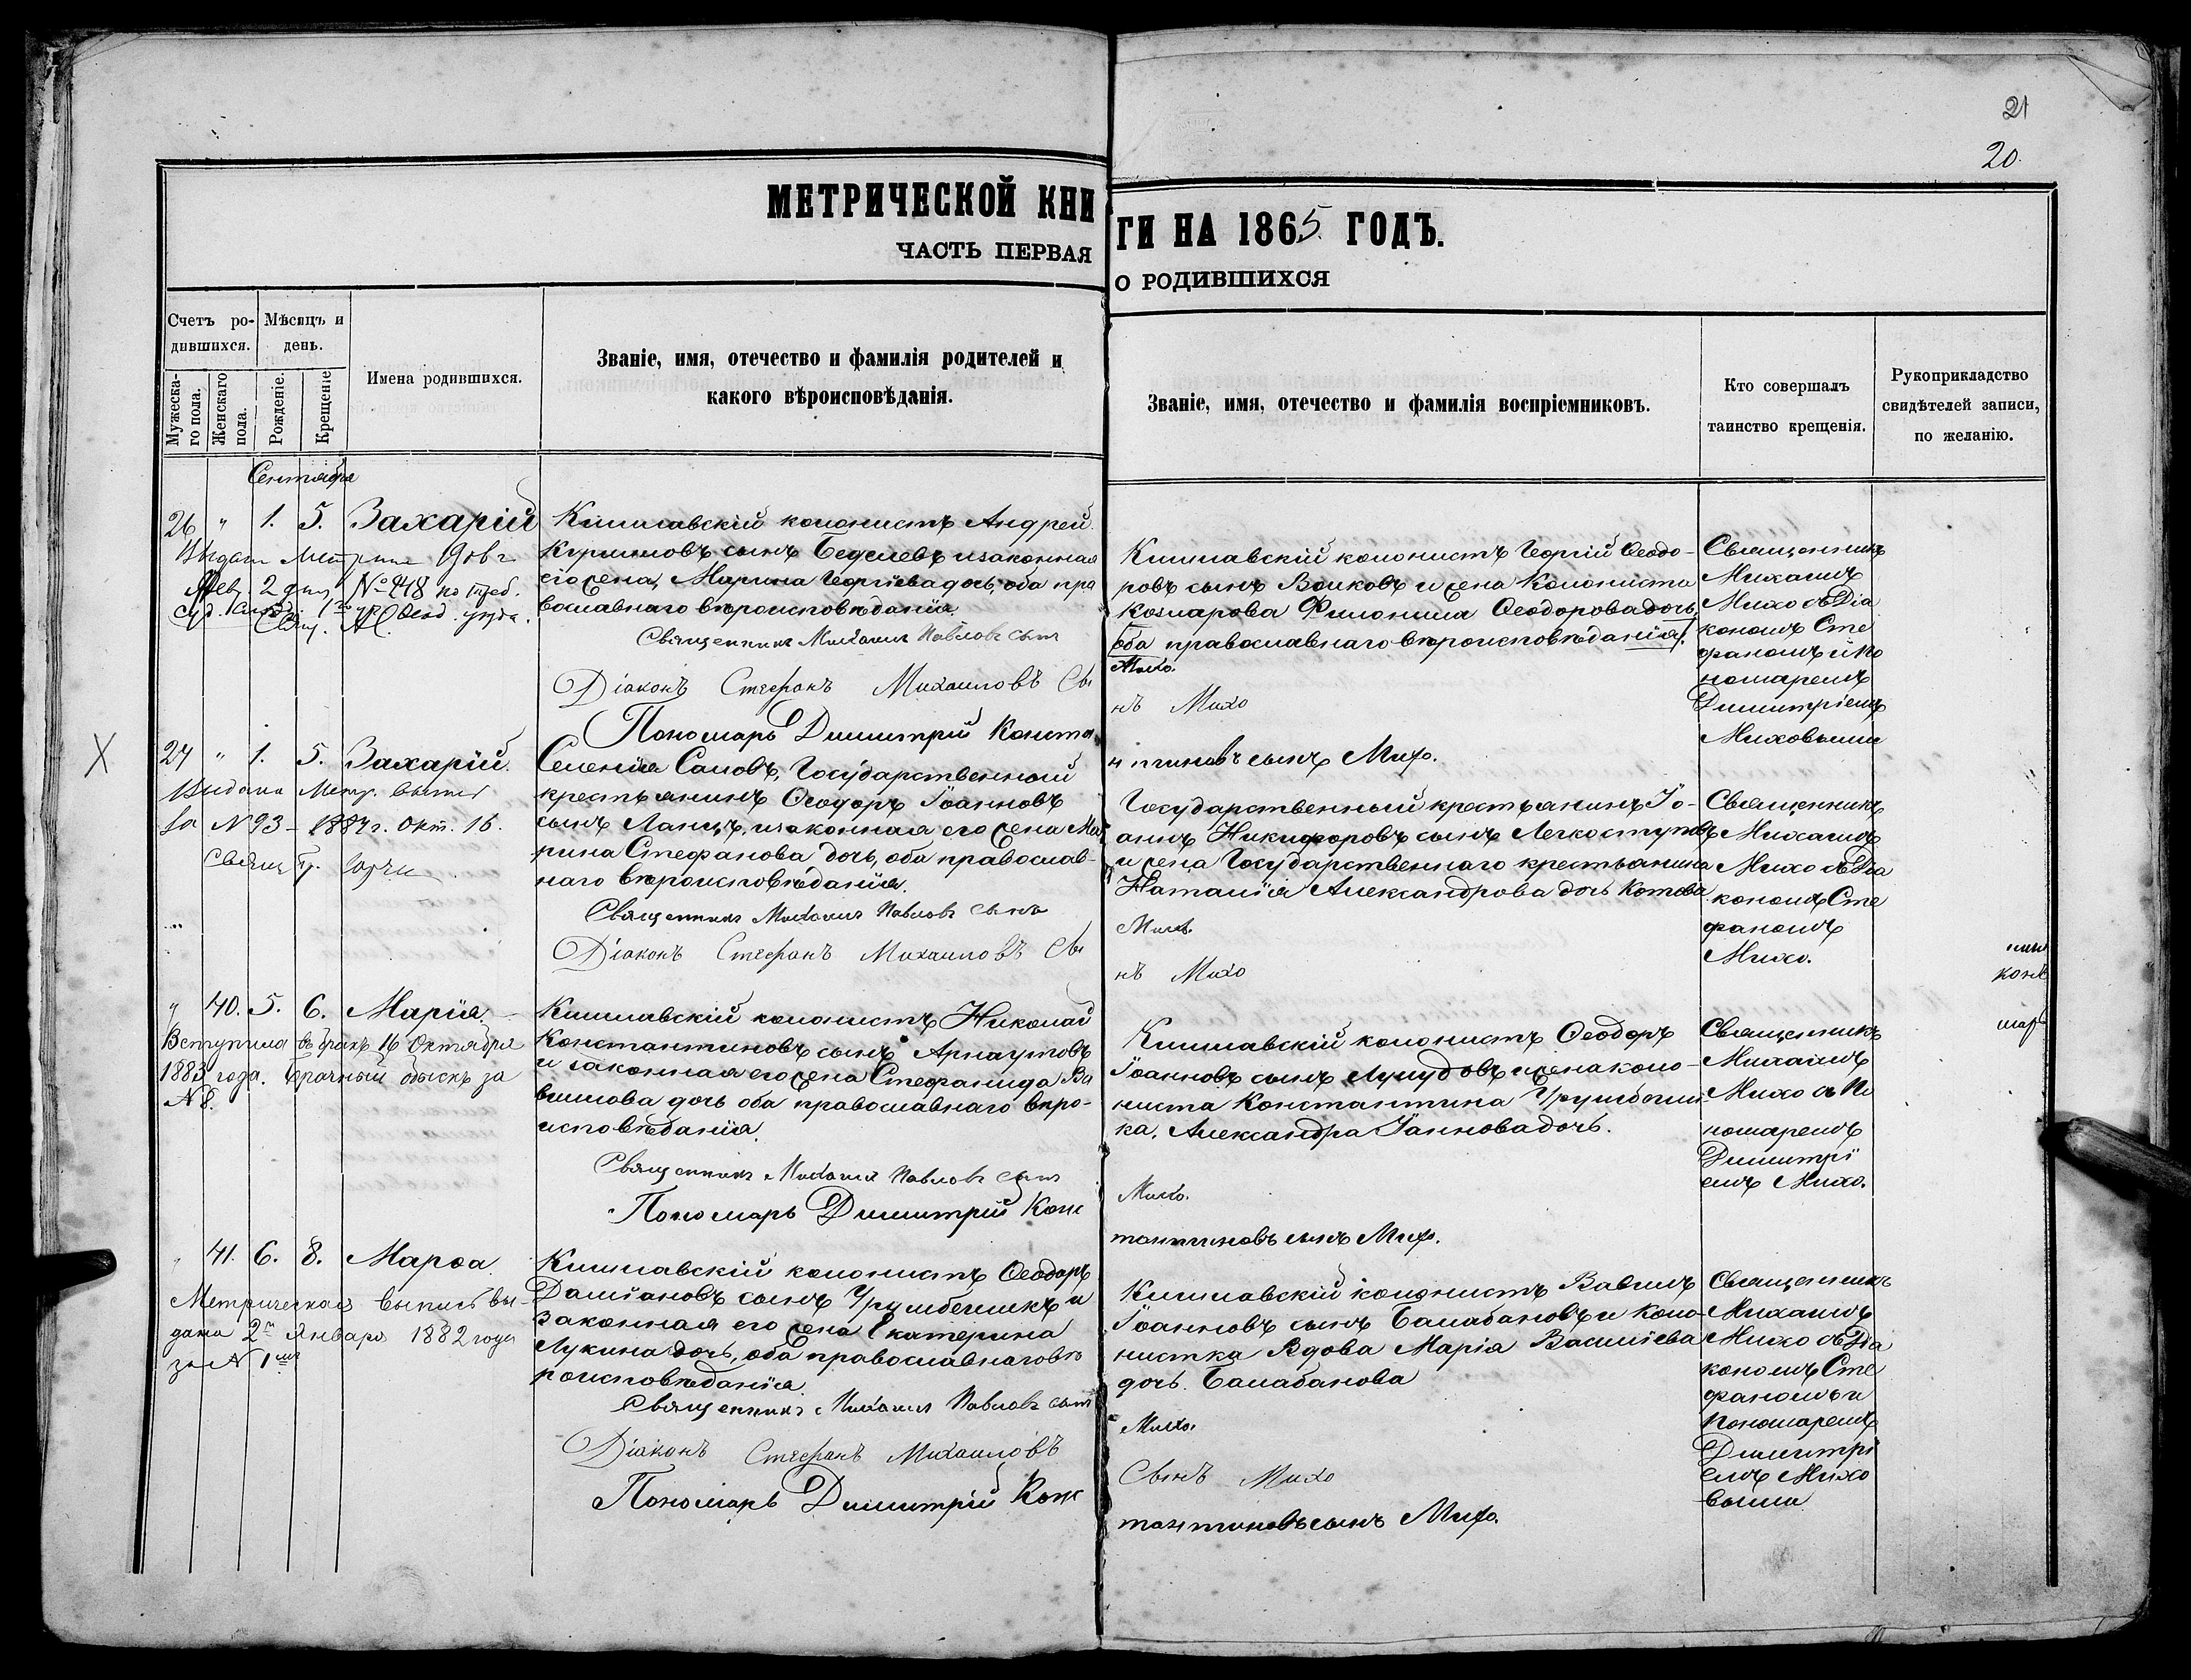 21
20.
МЕТРИЧЕСКОЙ КНИ
ГИ НА 1865. ГОДЪ.
ЧАСТЬ ПЕРВАЯ
О РОДИВШИХСЯ
Счетъ ро-
дившихся.
Мѣсяцъ и
день.
Мужеска-
го пола.
Женскаго
пола.
Рожденіе.
Крещеніе
Имена родившихся.
Званіе, имя, отечество и фамилія родителей и
какого вѣроисповѣданія.
Званіе, имя, отечество и фамилія воспріемниковъ.
Кто совершалъ
таинство крещенія.
Рукоприкладство
свидѣтелей записи,
по желанію.
Сентября
26 " 1. 5. Захарій
2 дня, № 448 по треб.
Кишлавскій колонистъ Андрей
сынъ и законная
его жена, Марина Георгіева дочь, оба пра
вославнаго вѣроисповѣданія.
Священникъ Михаилъ Павловъ сынъ
Михо.
Діаконъ Стефанъ Михаиловъ Сы
нъ Михо
Пономарь Димитрій Конста
нтиновъ сынъ Михо.
Кишлавскій колонистъ Георгій Ѳеодо-
ровъ сынъ Волковъ и жена Колониста
Ѳеодорова дочь
оба православнаго вѣроисповѣданія.
Священникъ
Михаилъ
Михо съ Діа
кономъ Сте
фаномъ и По
номаремъ
Димитріемъ
Миховыми
X
27 " 1. 5. Захарій.
Видана Метр. выпись
за N 93 - 1887 г. Окт. 16.
Селенія Саловъ, Государственный
крестьянинъ Ѳеодоръ Іоанновъ
сынъ и законная его жена Ма
рина Стефанова дочь, оба православ-
наго вѣроисповѣданія.
Священникъ Михаилъ Павловъ сынъ
Михо.
Діаконъ Стефанъ Михаиловъ Сы
нъ Михо
Государственный крестьянинъ Іо-
аннъ Никифоровъ сынъ Легкоступовъ
и жена Государственнаго крестьянина
Наталія Александрова дочь Котова
Священникъ
Михаилъ
Михо съ Діа
кономъ Сте
фаномъ
Михо.
" 40. 5. 6. Марія.
Вступила въ бракъ 16 Октября
1883 года. Брачный обыскъ за
N 8.
Кишлавскій колонистъ Николай
Константиновъ сынъ Арнаутовъ
и законная его жена Стефанида Ва
силіова дочь оба православнаго вѣро-
исповѣданія.
Священникъ Михаилъ Павловъ сынъ
Михо.
Пономарь Димитрій Конс
тантиновъ сынъ Михо.
Кишлавскій колонистъ Ѳеодоръ
Іоанновъ сынъ и жена коло-
ниста Константина Трумбечли-
ка, Александра Іоаннова дочь.
Священникъ
Михаилъ
Михо съ По
номаремъ
Димитрі
емъ Михо.
" 41. 6. 8. Марѳа
Метрическая выпись вы-
дана 2го Января 1882 года
за N 1мъ
Кишлавскій колонистъ Ѳеодоръ
Даміановъ сынъ и
законная его жена Екатерина
Лукина дочь, оба православнаго вѣ
роисповѣданія.
Священникъ Михаилъ Павловъ сынъ
Михо.
Діаконъ Стефанъ Михаиловъ
Сынъ Михо
Пономарь Димитрій Конс
тантиновъ сынъ Михо.
Кишлавскій колонистъ Вавилъ
Іоанновъ сынъ Балабановъ и Коло-
нистка Вдова Марія Василіева
дочь Балабанова
Священникъ
Михаилъ
Михо съ Діа
кономъ Сте
фаномъ и
Пономаремъ
Димитрі
емъ Михо
выми